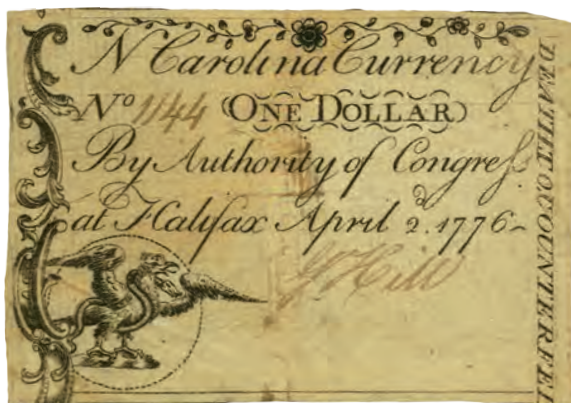 N Carolina Currency
No 1144 ONE DOLLAR
By Authority of Congreſs
at Halifax April 2d. 1776
Hill
DEATH TO COUNTERFEI